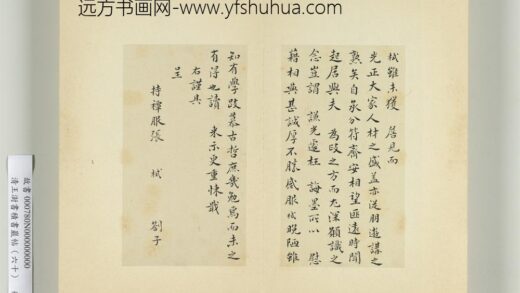 远方书画网-www.yfshuhua.com
栻雖未獲 居見而
光正大家人材之盛蓋亦從朋遊講之
熟矣自承分符齊安相望匪遠時聞
起居與夫 為政之方而尤深願識之
念豈謂 謙光遽枉 誨墨所以 慰
藉相與甚誠厚不勝感服栻晚陋雖
知有學跂慕古哲庶幾勉焉而未之
有得也請 来示更重悚戢
右謹具
呈
持禫服張 栻 劄子
故書 000780N000000000
清王澍書積書巖帖(六十)